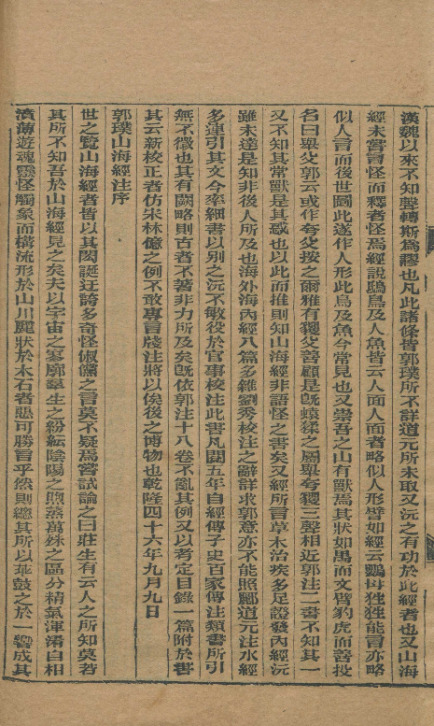 漢魏以來不知聲轉斯為謬也凡此諸條皆郭璞所不詳道元所未取又沅之有功於此經者也又山海
經未嘗言怪而釋者怪焉經說鴟鳥及人魚皆云人面人面者略似人形譬如經云鸚母狌狌能言亦略
似人言而後世圖此遂作人形此鳥及魚今常見也又崇吾之山有獸焉其狀如禺而文臂豹虎而善投
名曰舉父郭云或作夸父按之爾雅有玃父善顧是既蝯猱之屬舉夸玃三聲相近郭注二書不知其一
又不知其常獸是其惑也以此而推則知山海經非語怪之書矣又經所言草木治疾多足證發內經沅
雖未達是知非後人所及也海外海內經八篇多雜劉秀校注之辭詳求郭意亦不能照酈道元注水經
多連引其文今率細書以別之沅不敏役於官事校注此書凡閱五年自經傳子史百家傳注類書所引
無不徵也其有闕略則古者不著非力所及矣既依郭注十八卷不亂其例又以考定目錄一篇附於書
其云新校正者仿宋林億之例不敢專言牋注將以俟後之博物也乾隆四十六年九月九日
郭璞山海經注序
世之覽山海經者皆以其閎誕迂誇多奇怪俶儻之言莫不疑焉嘗試論之曰莊生有云人之所知莫若
其所不知吾於山海經見之矣夫以宇宙之寥廓羣生之紛紜陰陽之煦蒸萬殊之區分精氣渾淆自相
濆薄遊魂靈怪觸象而構流形於山川麗狀於木石者惡可勝言乎然則總其所以乖鼓之於一響成其